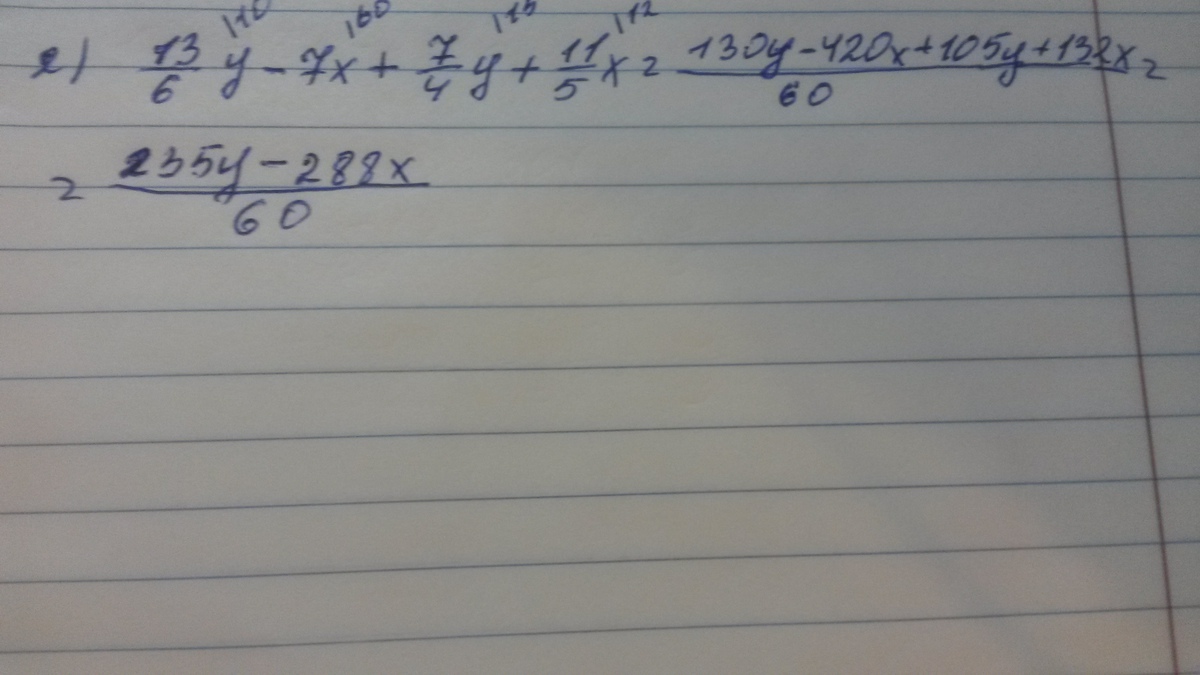 |10 |60 |15 |12
2) 13/6 y - 7x + 7/4 y + 11/5 x = 130y - 420x + 105y + 132x / 60 =
= 235y - 288x / 60